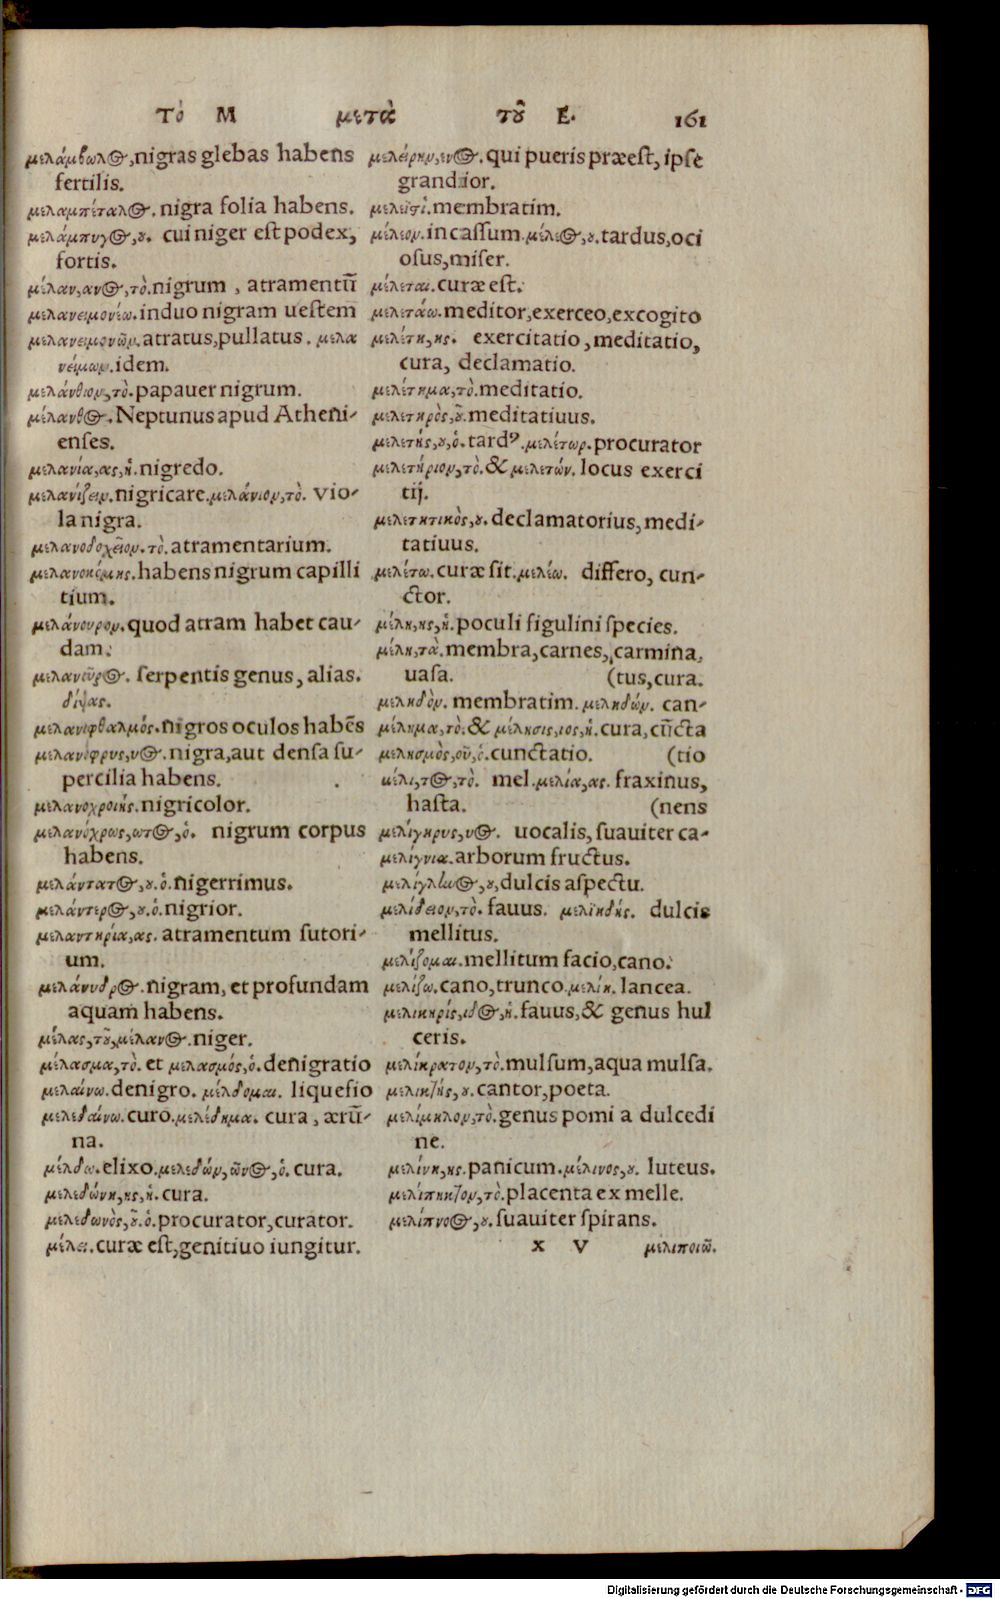 Τὸ Μ μετὰ τοῦ Ε. 161
μελάμβωλος, nigras glebas habens
fertilis.
μελαμπέταλος. nigra folia habens.
μελάμπυγος,ου. cui niger est podex,
fortis.
μέλαν,ανος,τὸ. nigrum , atramentū
μελανειμονέω. induo nigram uestem
μελανειμονῶν. atratus, pullatus. μελα
νείμων. idem.
μελάνθιον,τὸ. papauer nigrum.
μέλανθος. Neptunus apud Atheni-
enses.
μελανία,ας,ἡ. nigredo.
μελανίζειν. nigricare. μελάνιον,τὸ. vio-
la nigra.
μελανοδοχεῖον.τὸ. atramentarium.
μελανοκόμης. habens nigrum capilli
tium.
μελάνουρον. quod atram habet cau-
dam.
μελανοῦρος. serpentis genus, alias.
δίψας.
μελανόφθαλμός. nigros oculos habēs
μελανόφρυς,υος. nigra, aut densa su-
percilia habens.
μελανοχροιής. nigricolor.
μελανόχρως,ωτος,ὁ. nigrum corpus
habens.
μελάντατος,ου.ὁ. nigerrimus.
μελάντερος,ου.ὁ. nigrior.
μελαντηρία,ας. atramentum sutori-
um.
μελάνυδρος. nigram, et profundam
aquam habens.
μέλας,τοῦ,μέλανος. niger.
μέλασμα,τὸ. et μελασμός,ὁ. denigratio
μελαίνω. denigro. μέλδομαι. liquefio
μελεδαίνω. curo. μελέδημα. cura , ærū-
na.
μέλδω. elixo. μελεδών,ῶνος,ὁ. cura.
μελεδώνη,ης,ἡ. cura.
μελεδωνὸς,οῦ.ὁ. procurator, curator.
μέλει. curæ est, genitiuo iungitur.
μελείρην,ενος. qui pueris præest, ipse
grandior.
μελεϊστί. membratim.
μέλεον. incassum. μέλεος,ου. tardus, oci
osus, miser.
μέλεται. curæ est.
μελετάω. meditor, exerceo, excogito
μελέτη,ης. exercitatio, meditatio,
cura, declamatio.
μελέτημα,τὸ. meditatio.
μελετηρὸς,οῦ. meditatiuus.
μελετής,ου,ὁ. tardꝰ. μελέτωρ. procurator
μελετήριον,τὸ. & μελετών. locus exerci
tij.
μελετητικὸς,ου. declamatorius, medi-
tatiuus.
μελέτω. curæ sit. μελέω. differo, cun-
ctor.
μέλη,ης,ἡ. poculi figulini species.
μέλη,τὰ. membra, carnes, carmina,
uasa. (tus, cura.
μεληδὸν. membratim. μεληδών. can-
μέλημα,τὸ. & μέλησις,ιος,ἡ. cura, cūcta
μελησμὸς,οῦ,ὁ. cunctatio. (tio
μέλι,τος,τὸ. mel. μελία,ας. fraxinus,
hasta. (nens
μελίγηρυς,υος. uocalis, suauiter ca-
μελίγνια. arborum fructus.
μελίγληνος,ου, dulcis aspectu.
μελίδειον,τὸ. fauus. μελιηδής. dulcis
mellitus.
μελίζομαι. mellitum facio, cano.
μελίζω. cano, trunco. μελίη. lancea.
μελικηρίς,ιδος,ἡ. fauus, & genus hul
ceris.
μελίκρατον,τὸ. mulsum, aqua mulsa.
μελικτής,ου. cantor, poeta.
μελίμηλον,τὸ. genus pomi a dulcedi
ne.
μελίνη,ης. panicum. μέλινος,ου. luteus.
μελίπηκτον,τὸ. placenta ex melle.
μελίπνοος,ου. suauiter spirans.
X V μελιποιῶ.
Digitalisierung gefördert durch die Deutsche Forschungsgemeinschaft - DFG